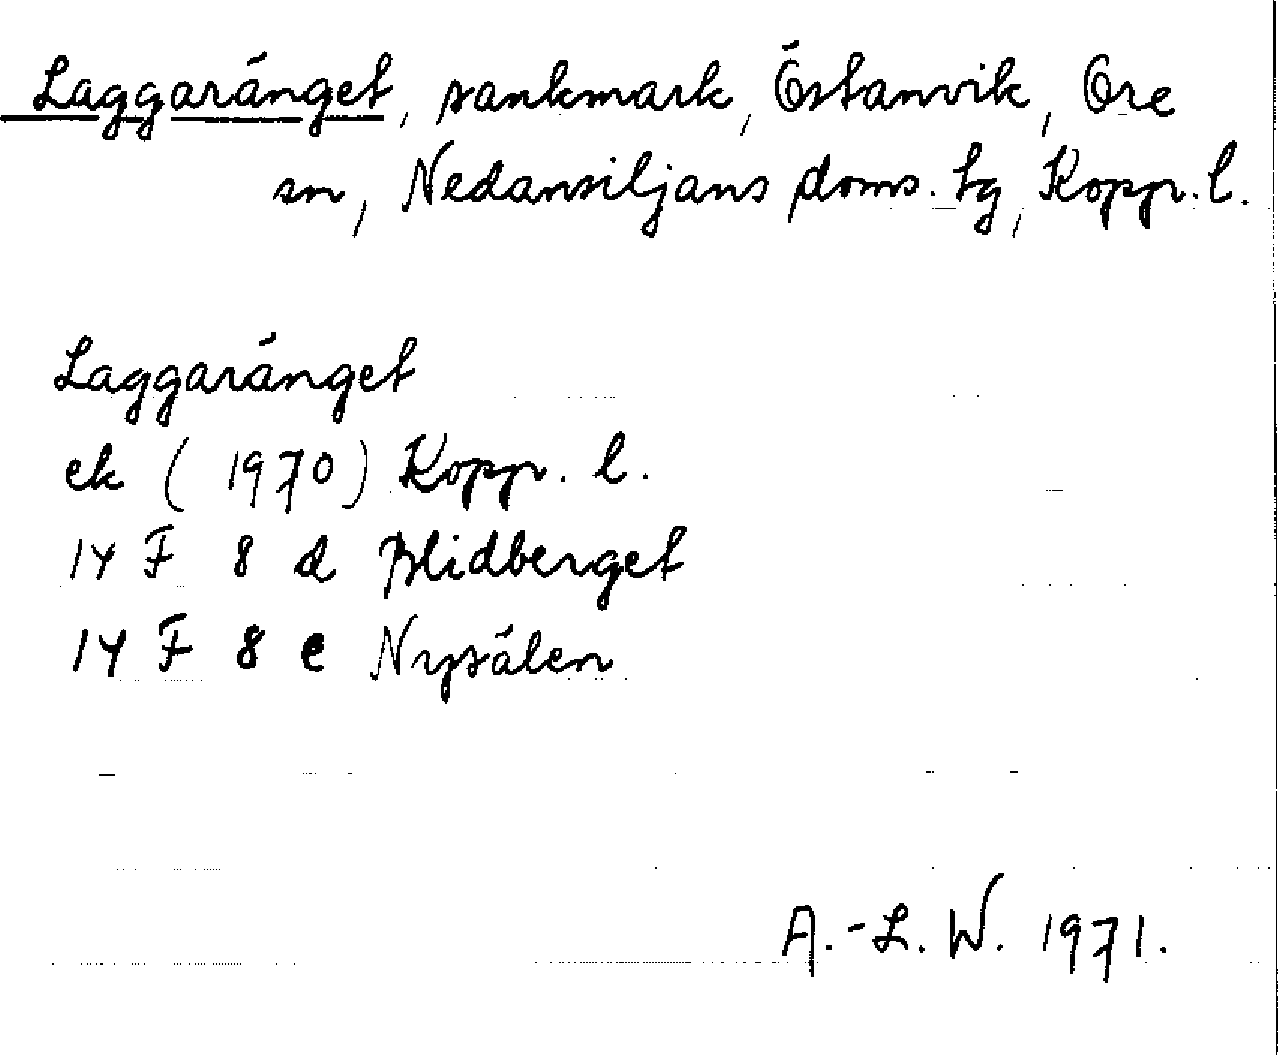 Laggaränget, sankmark, Östanvik, Ore
sn, Nedansiljans doms. tg, Koppr. l.
Laggaränget
ek (1970) Koppr. l.
14 F 8 d Blidberget
14 F 8 e Nysälen
A.-L. W. 1971.